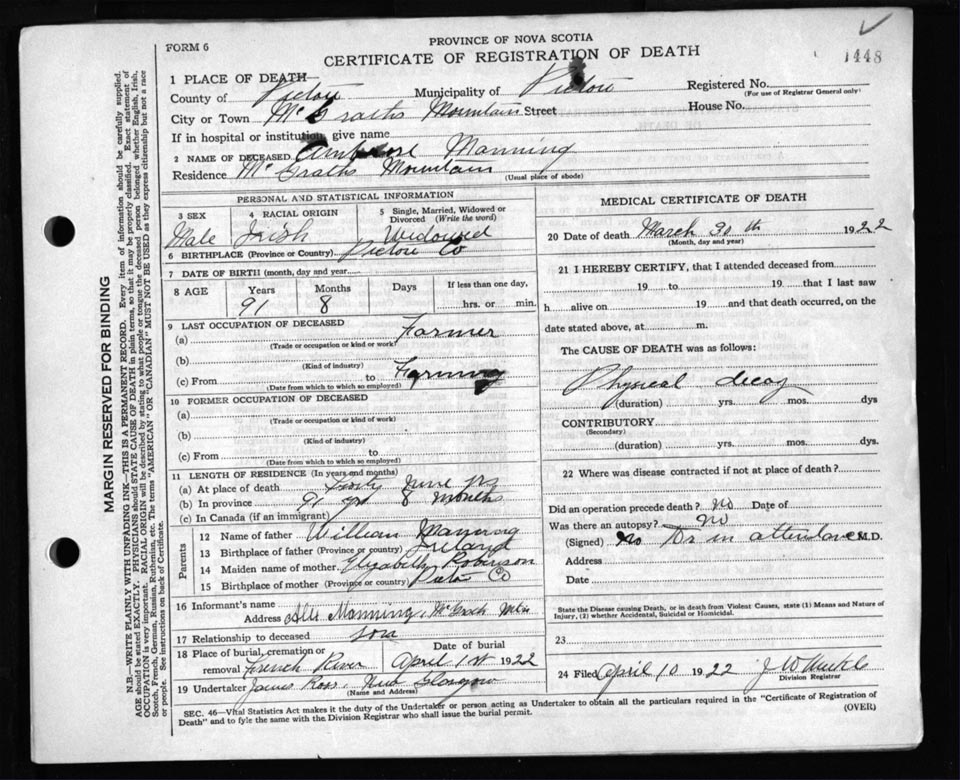 FORM 6
PROVINCE OF NOVA SCOTIA
CERTIFICATE OF REGISTRATION OF DEATH
1448
1 PLACE OF DEATH
County of Pictou Municipality of Pictou Registered No.
(For use of Registrar General only)
City or Town McGraths Mountain Street House No.
If in hospital or institution, give name
2 NAME OF DECEASED Ambrose Manning
Residence McGraths Mountain
(Usual place of abode)
PERSONAL AND STATISTICAL INFORMATION
3 SEX 4 RACIAL ORIGIN 5 Single, Married, Widowed or Divorced (Write the word)
Male Irish Widowed
6 BIRTHPLACE (Province or Country) Pictou Co
7 DATE OF BIRTH (month, day and year)
8 AGE Years Months Days If less than one day,
91 8 hrs. or min.
9 LAST OCCUPATION OF DECEASED
(a) Farmer
(Trade or occupation or kind or work)
(b)
(Kind of industry)
(c) From to Farming
(Date from which to which so employed)
10 FORMER OCCUPATION OF DECEASED
(a)
(Trade or occupation or kind of work)
(b)
(Kind of industry)
(c) From to
(Date from which to which so employed)
11 LENGTH OF RESIDENCE (In years and months)
(a) At place of death
(b) In province 91 yrs 8 months
(c) In Canada (if an immigrant)
Parents
12 Name of father William Manning
13 Birthplace of father (Province or country) Ireland
14 Maiden name of mother Elizabeth Robinson
15 Birthplace of mother (Province or country) Pictou Co
16 Informant's name
Address Manning,
17 Relationship to deceased son
18 Place of burial, cremation or removal French River
Date of burial April 1st 1922
19 Undertaker James Ross, New Glasgow
(Name and Address)
MEDICAL CERTIFICATE OF DEATH
20 Date of death March 30th 1922
(Month, day and year)
21 I HEREBY CERTIFY, that I attended deceased from
19 to 19 that I last saw
h alive on 19 and that death occurred, on the
date stated above, at m.
The CAUSE OF DEATH was as follows:
Physical decay
(duration) yrs. mos. dys
CONTRIBUTORY
(Secondary)
(duration) yrs. mos. dys.
22 Where was disease contracted if not at place of death?
Did an operation precede death? no Date of
Was there an autopsy? no
(Signed) No Dr in attendance M.D.
Address
Date
State the Disease causing Death, or in death from Violent Causes, state (1) Means and Nature of
Injury, (2) whether Accidental, Suicidal or Homicidal.
23
24 Filed April 10 1922 J W
Division Registrar
SEC. 46—Vital Statistics Act makes it the duty of the Undertaker or person acting as Undertaker to obtain all the particulars required in the "Certificate of Registration of
Death" and to fyle the same with the Division Registrar who shall issue the burial permit.
(OVER)
MARGIN RESERVED FOR BINDING
N.B.—WRITE PLAINLY WITH UNFADING INK—THIS IS A PERMANENT RECORD. Every item of information should be carefully supplied.
AGE should be stated EXACTLY. PHYSICIANS should STATE CAUSE OF DEATH in plain terms, so that it may be properly classified. Exact statement of
OCCUPATION is very important. RACIAL ORIGIN will be described by stating to what people or tongue the deceased person belonged whether English, Irish,
Scotch, French, German, Russian, Ruthenian, etc. The terms "AMERICAN" OR "CANADIAN" MUST NOT BE USED as they express citizenship but not a race
or people. See instructions on back of Certificate.